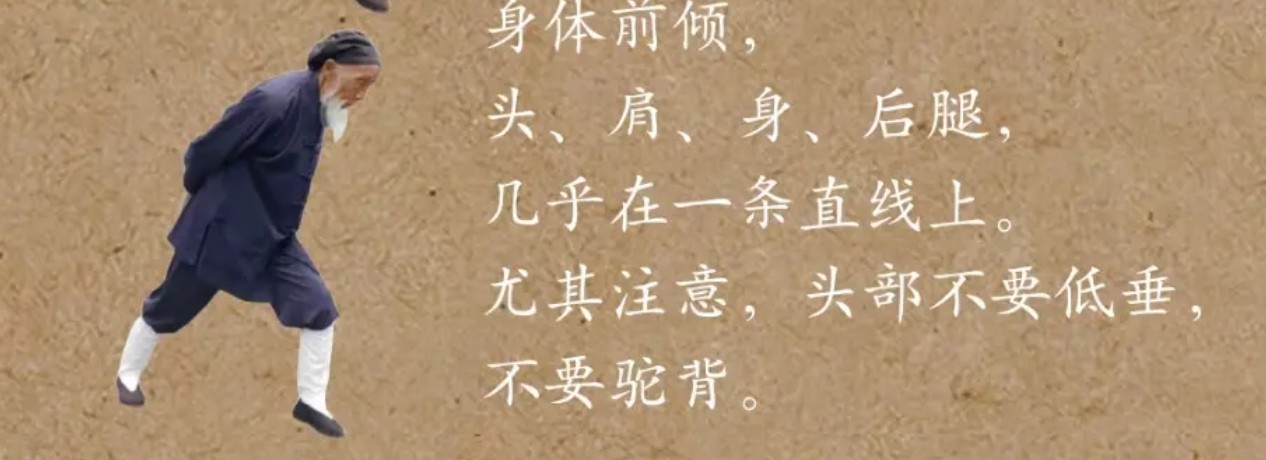 身体前倾，
头、肩、身、后腿，
几乎在一条直线上。
尤其注意，头部不要低垂，
不要驼背。